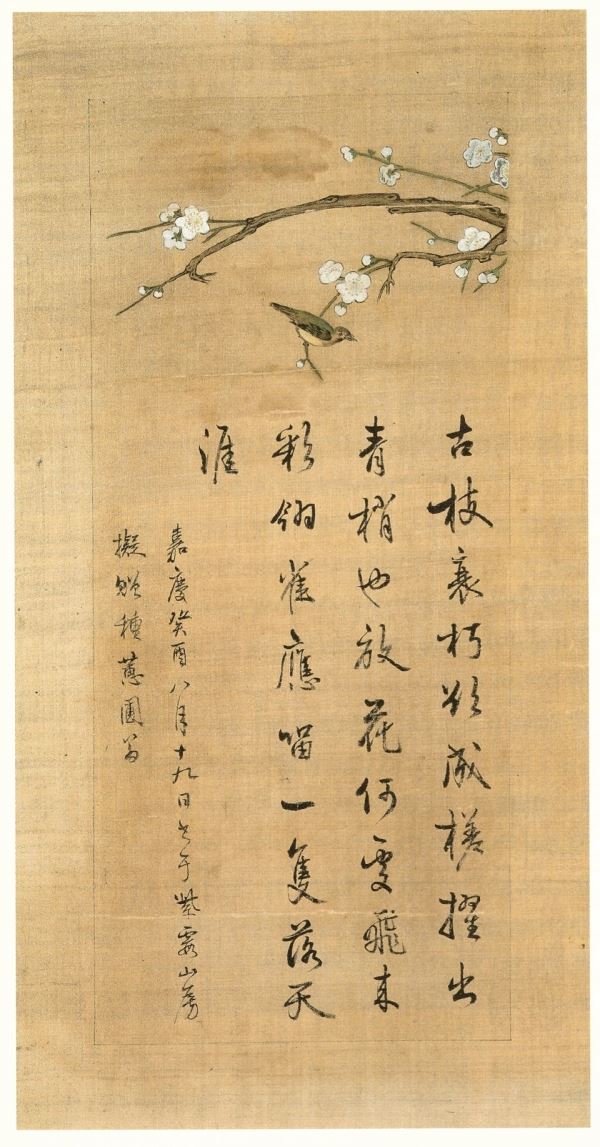 古枝衰朽欲成槎擢出
青梢也放花何處飛来
彩翎雀應留一隻落天
涯
嘉慶癸酉八月十九日書于紫霞山房
擬贈種蕙圃翁